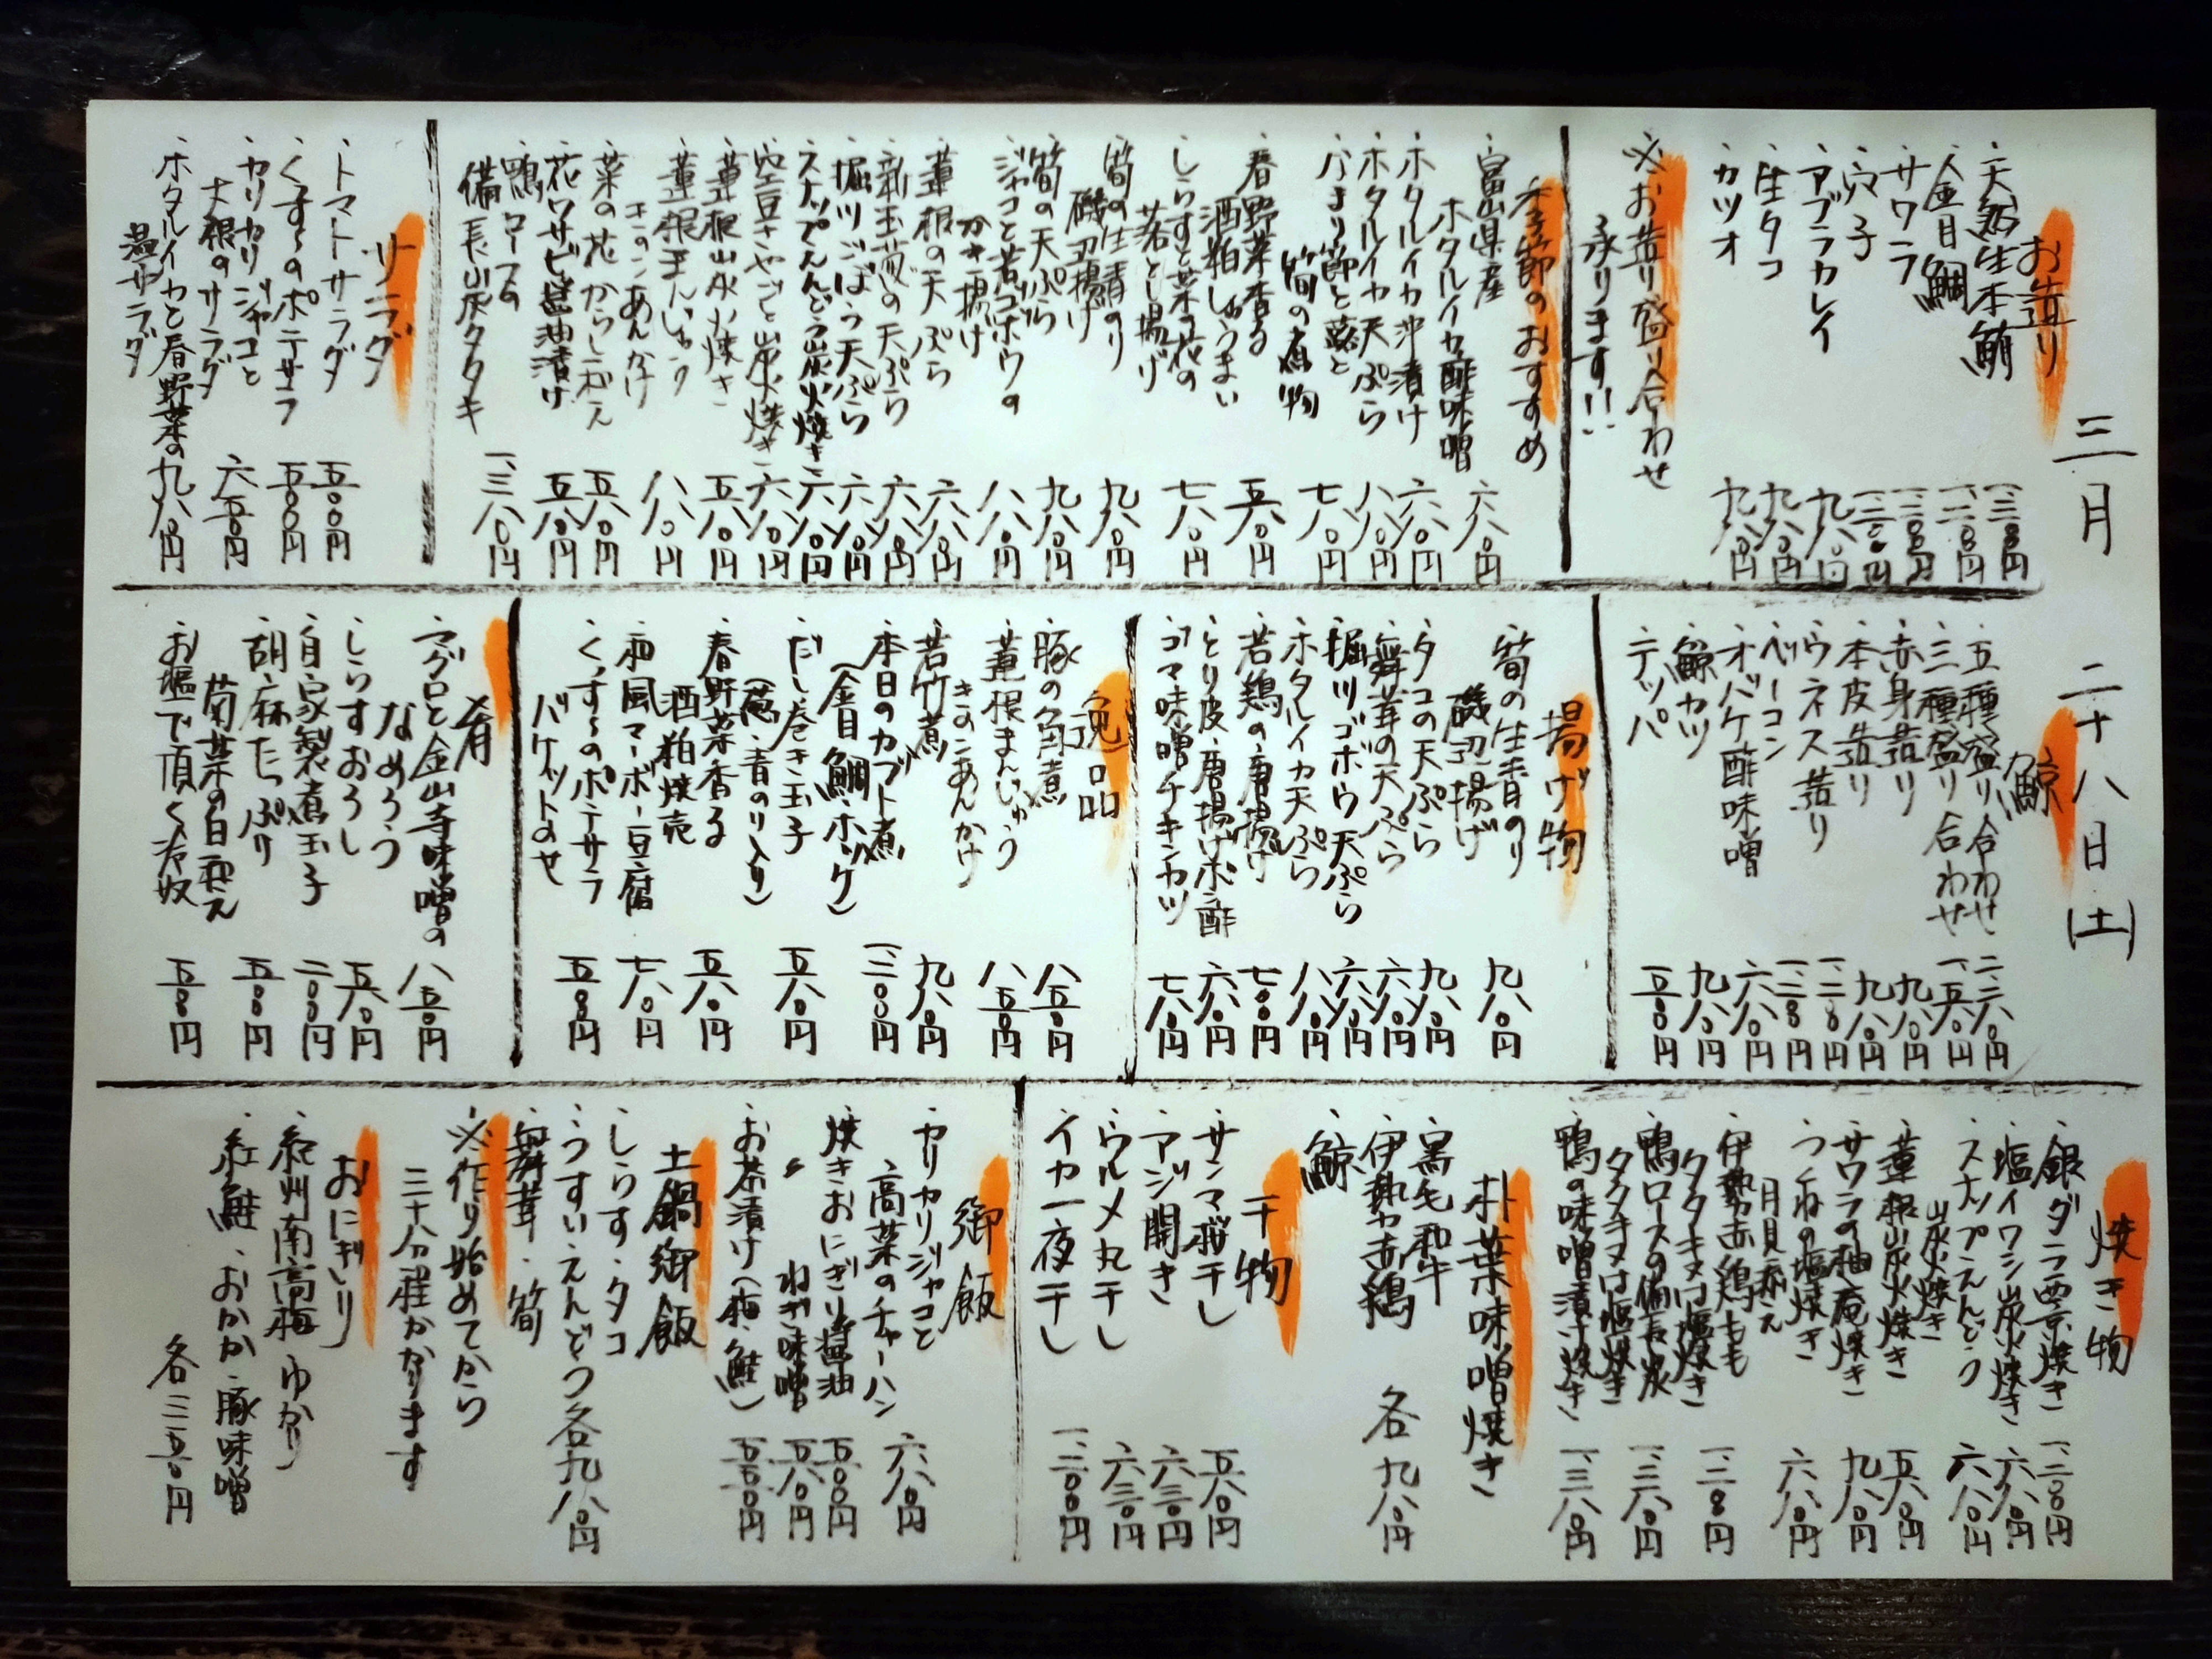 三月 二十八日(土)
お造り
・天然生本鮪 一、三八〇円
・金目鯛
・サワラ
・穴子
・アブラカレイ 九八〇円
・生タコ 九八〇円
・カツオ 九八〇円
※お造り盛り合わせ
承ります!!
季節のおすすめ
・富山県産
ホタルイカ酢味噌 六八〇円
・ホタルイカ沖漬け 六八〇円
・ホタルイカ天ぷら 八八〇円
・なまり節と蕗と
筍の煮物 七八〇円
・春野菜香る
酒粕しゅうまい 五八〇円
・しらすと菜の花の
落とし揚げ 七八〇円
・筍の生青のり
磯辺揚げ 九八〇円
・筍の天ぷら 九八〇円
・ジャコと若ゴボウの
かき揚げ 八八〇円
・蓮根の天ぷら 六八〇円
・新玉葱の天ぷら 六八〇円
・堀川ごぼう天ぷら 六八〇円
・スナップえんどう炭火焼き 六八〇円
・空豆さやごと炭火焼き 六八〇円
・蓮根炭火焼き 五八〇円
・蓮根まんじゅう
きのこあんかけ 八八〇円
・菜の花からし和え 五八〇円
・花ワサビ醤油漬け 五八〇円
・鴨ロースの
備長炭タタキ 一、三八〇円
サラダ
・トマトサラダ 五〇〇円
・くずしのポテサラ 五〇〇円
・カリカリジャコと
大根のサラダ 六五〇円
・ホタルイカと春野菜の
温サラダ 九八〇円
鯨
・五種盛り合わせ 二、二八〇円
・三種盛り合わせ 一、五八〇円
・赤身造り 九八〇円
・本皮造り 九八〇円
・ウネス造り
・ベーコン
・オバケ酢味噌 六八〇円
・鯨カツ 九八〇円
・テッパ
揚げ物
・筍の生青のり
磯辺揚げ 九八〇円
・タコの天ぷら 九八〇円
・舞茸の天ぷら 六八〇円
・堀川ゴボウ天ぷら 六八〇円
・ホタルイカ天ぷら 八八〇円
・若鶏の唐揚げ 七〇〇円
・とり皮唐揚げポン酢 六八〇円
・ゴマ味噌チキンカツ 七八〇円
逸品
・豚の角煮 八五〇円
・蓮根まんじゅう
きのこあんかけ 八五〇円
・若竹煮 九八〇円
・本日のカブト煮
(金目鯛・ホッケ) 一、三〇〇円
・だし巻き玉子
(葱・青のり入り) 五八〇円
・春野菜香る
酒粕焼売 五八〇円
・和風マーボー豆腐 七八〇円
・くずしのポテサラ
バケットのせ 五五〇円
肴
・マグロと金山寺味噌の
なめろう 八五〇円
・しらすおろし 五八〇円
・自家製煮玉子 二〇〇円
・胡麻たっぷり
菊菜の白和え 五五〇円
・お塩で頂く冷奴 五五〇円
焼き物
・銀ダラ西京焼き
・塩イワシ炭火焼き 六八〇円
・スナップえんどう
炭火焼き 六八〇円
・蓮根炭火焼き 五八〇円
・サワラの柚庵焼き 九八〇円
・つくねの塩焼き
月見添え 六八〇円
・伊勢赤鶏もも
タタキ又は塩焼き
・鴨ロースの備長炭
タタキ又は塩焼き 一、三八〇円
・鴨の味噌漬け焼き 一、三八〇円
朴葉味噌焼き
・黒毛和牛
・伊勢赤鶏 各九八〇円
・鯨
干物
・サンマ桜干し 五八〇円
・アジ開き 六三〇円
・ウルメ丸干し 六三〇円
・イカ一夜干し
御飯
・カリカリジャコと
高菜のチャーハン 六八〇円
・焼きおにぎり醤油 五〇〇円
〃 ねぎ味噌 五八〇円
・お茶漬け(梅・鮭) 五五〇円
土鍋御飯
・しらす・タコ
・うすいえんどう 各九八〇円
・舞茸・筍
※作り始めてから
三十分程かかります
おにぎり
・紀州南高梅・ゆかり
・紅鮭・おかか・豚味噌
各三五〇円